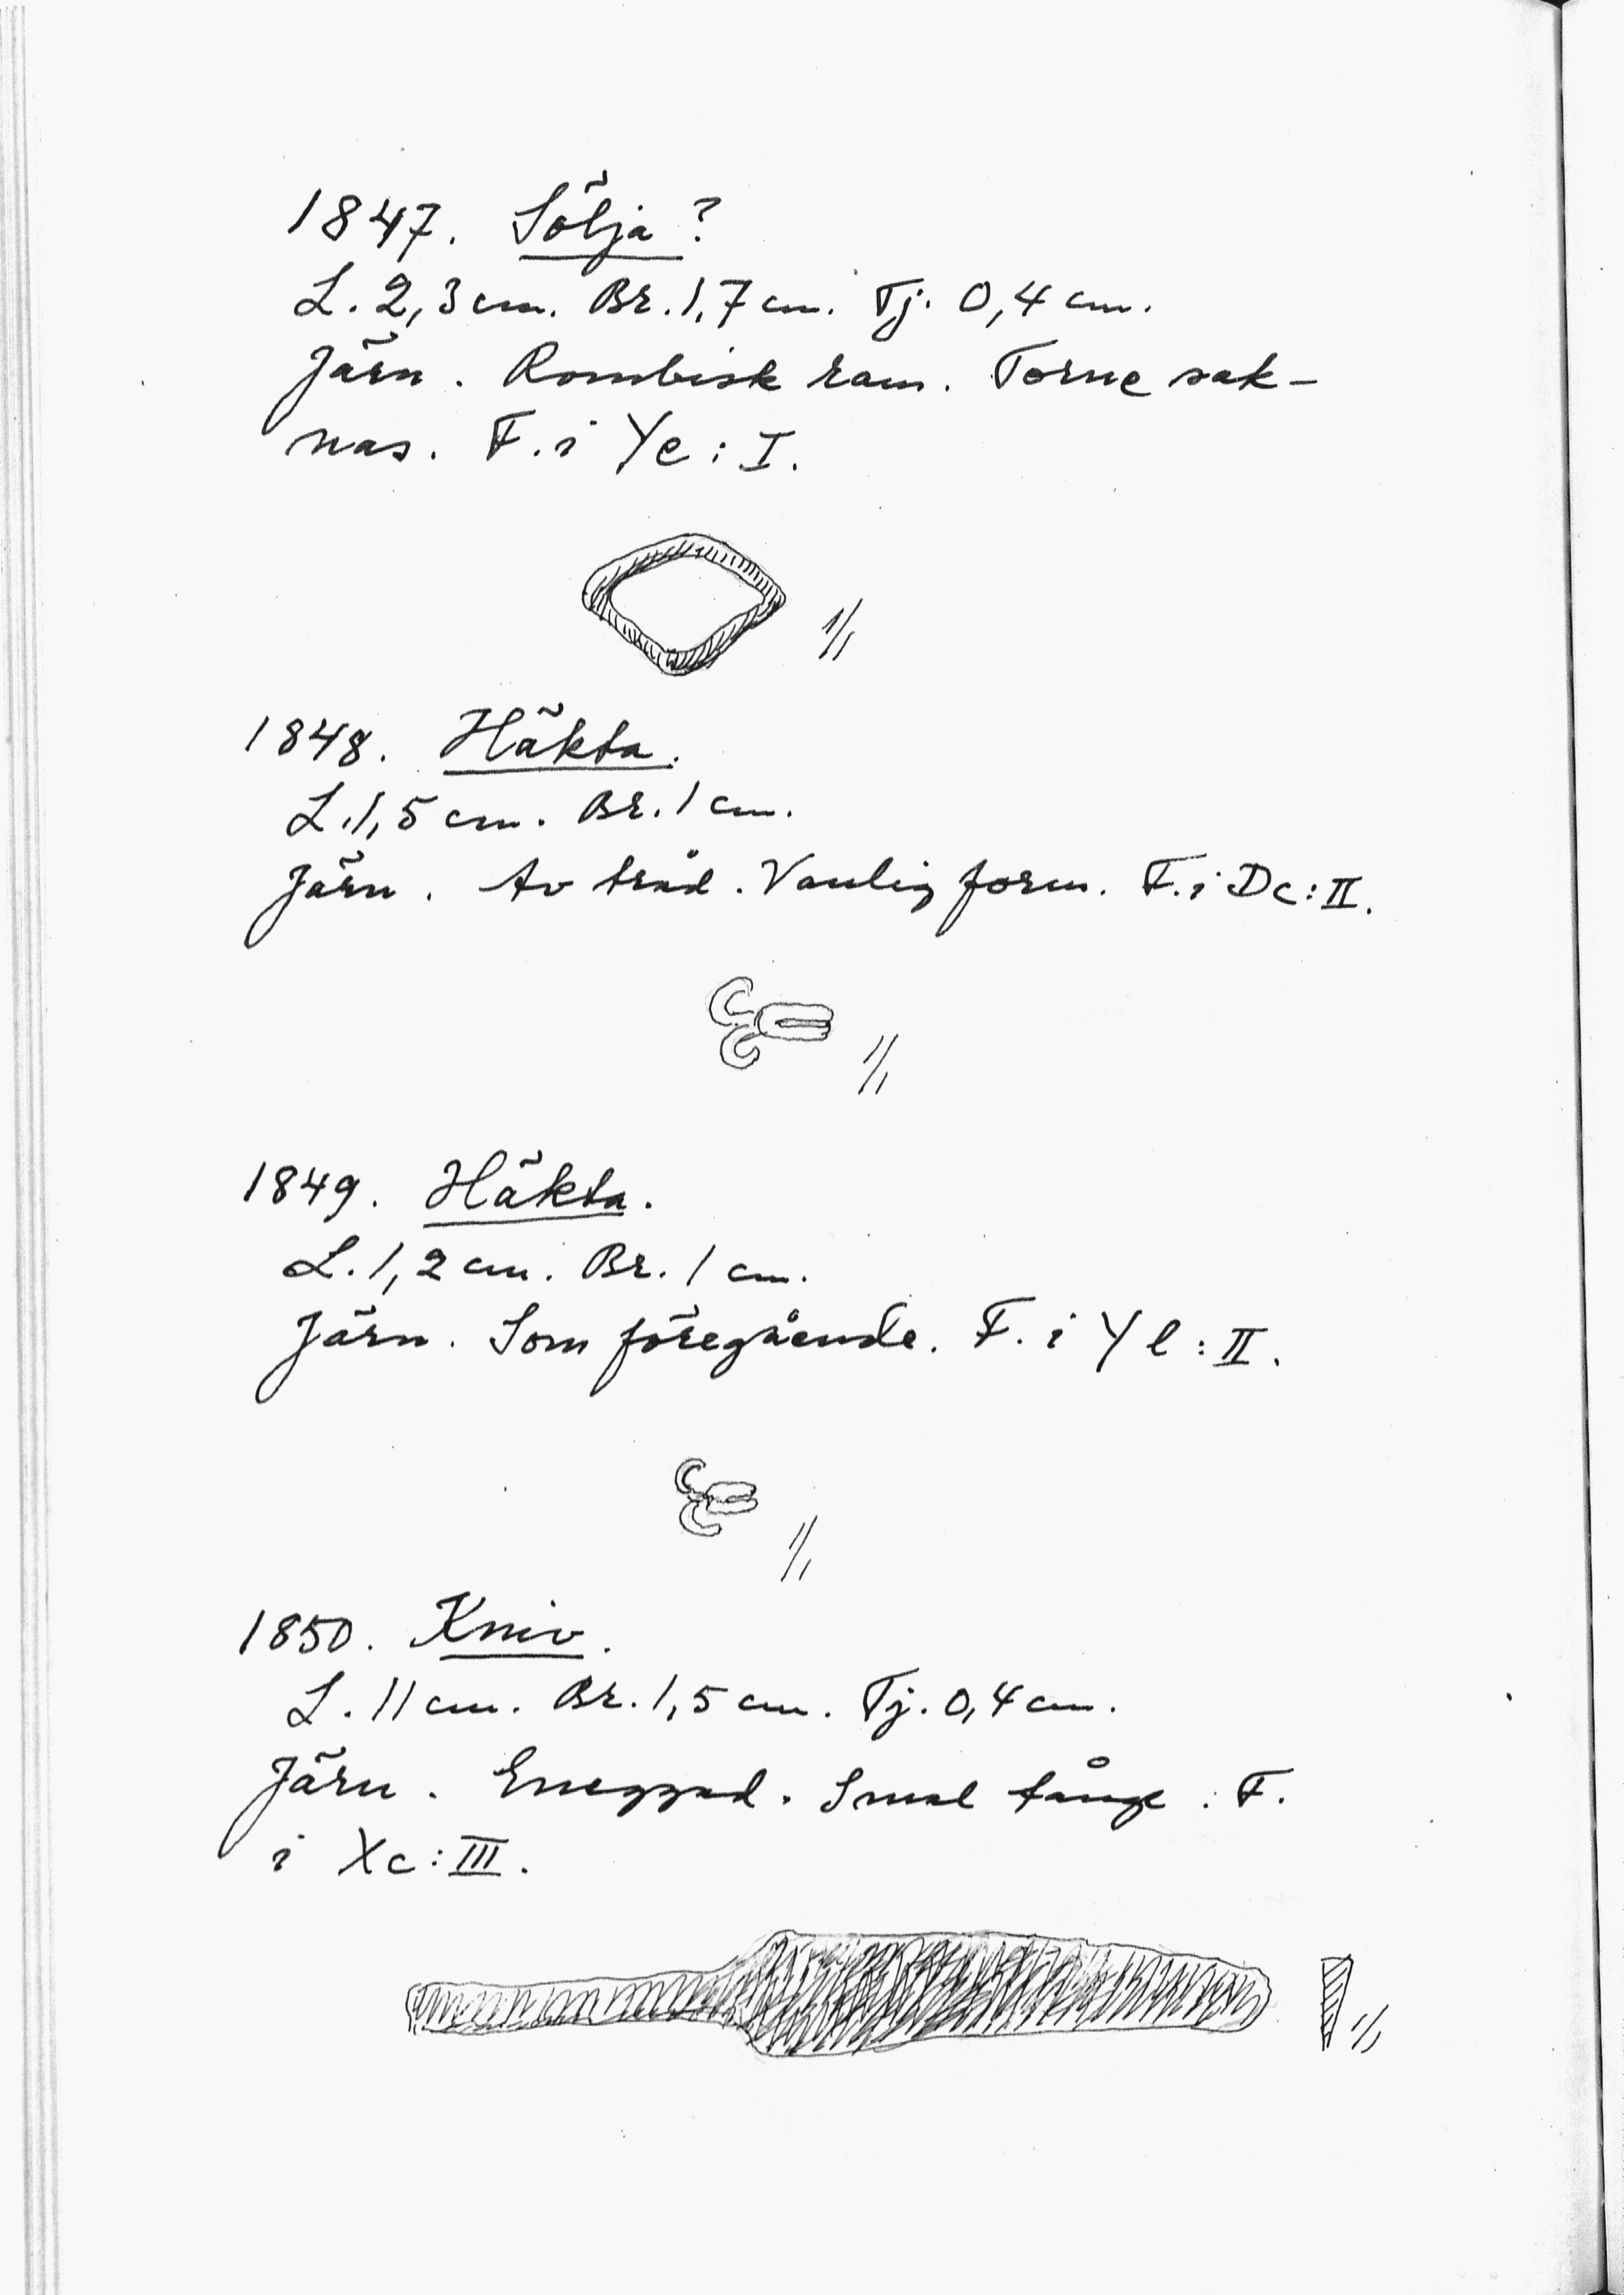 1847. Sölja?
L. 2,3 cm. Br. 1,7 cm. Tj. 0,4 cm.
Järn. Rombisk ram. Torne sak-
nas. F. i Ye : I.
1/1
1848. Häkta.
L. 1,5 cm. Br. 1 cm.
Järn. Av tråd. Vanlig form. F. i Dc : II.
1/1
1849. Häkta.
L. 1,2 cm. Br. 1 cm.
Järn. Som föregående. F. i Yl : II.
1/1
1850. Kniv.
L. 11 cm. Br. 1,5 cm. Tj. 0,4 cm.
Järn. Eneggad. Smal tånge. F.
i Xc : III.
1/1